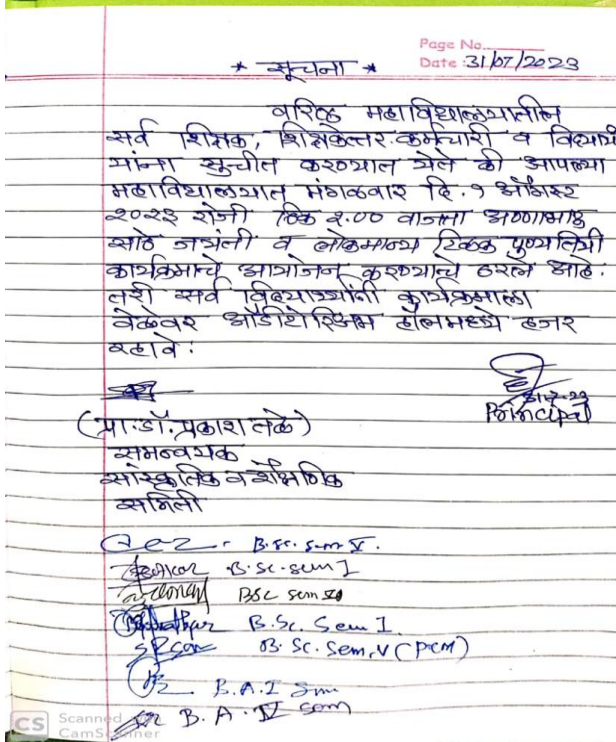 Page No.
Date : 31/07/2023
* सूचना *
वरिष्ठ महाविद्यालयातील
सर्व शिक्षक, शिक्षकेत्तर कर्मचारी व विद्यार्थी
यांना सुचीत करण्यात येते की आपल्या
महाविद्यालयात मंगळवार दि. १ ऑगस्ट
२०२३ रोजी ठिक २.०० वाजता अण्णाभाऊ
साठे जयंती व लोकमान्य टिळक पुण्यतिथी
कार्यक्रमाचे आयोजन करण्याचे ठरले आहे.
तरी सर्व विद्यार्थ्यांनी कार्यक्रमाला
वेळेवर ऑडीटोरिअम हॉलमध्ये हजर
रहावे.
31-7-23
Principal
(प्रा.डॉ. प्रकाश तळे)
समन्वयक
सांस्कृतिक व शैक्षणिक
समिती
B.Sc. Sem V.
B.Sc. Sem I
BSC Sem
B.Sc. Sem I.
B.Sc. Sem, V (PCM)
B.A. I Sem
B.A. IV Sem
CS Scanned
CamScanner